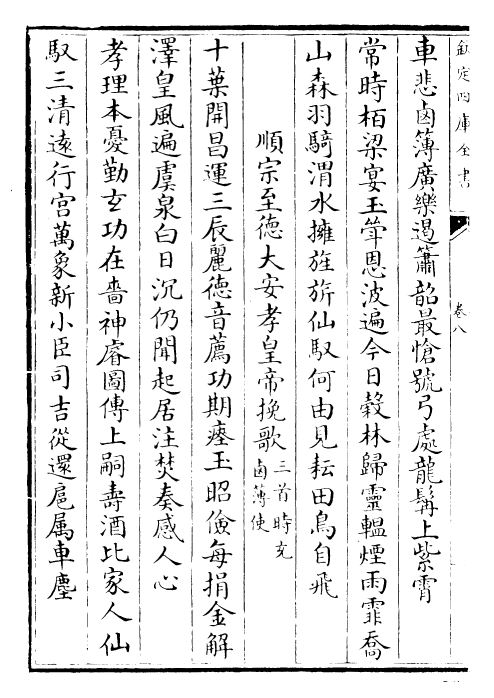 欽定四庫全書
卷八
車悲鹵簿廣樂遏簫韶最愴號弓處龍髯上紫霄
常時栢梁宴玉斝恩波遍今日穀林歸靈輼煙雨霏喬
山森羽騎渭水擁旌旂仙馭何由見耘田鳥自飛
順宗至德大安孝皇帝挽歌三首時充鹵簿使
十葉開昌運三辰麗德音薦功期瘞玉昭儉每捐金解
澤皇風遍虞泉白日沉仍聞起居注焚奏感人心
孝理本憂勤玄功在嗇神睿圖傳上嗣壽酒比家人仙
馭三清遠行宮萬象新小臣司吉從還扈属車塵